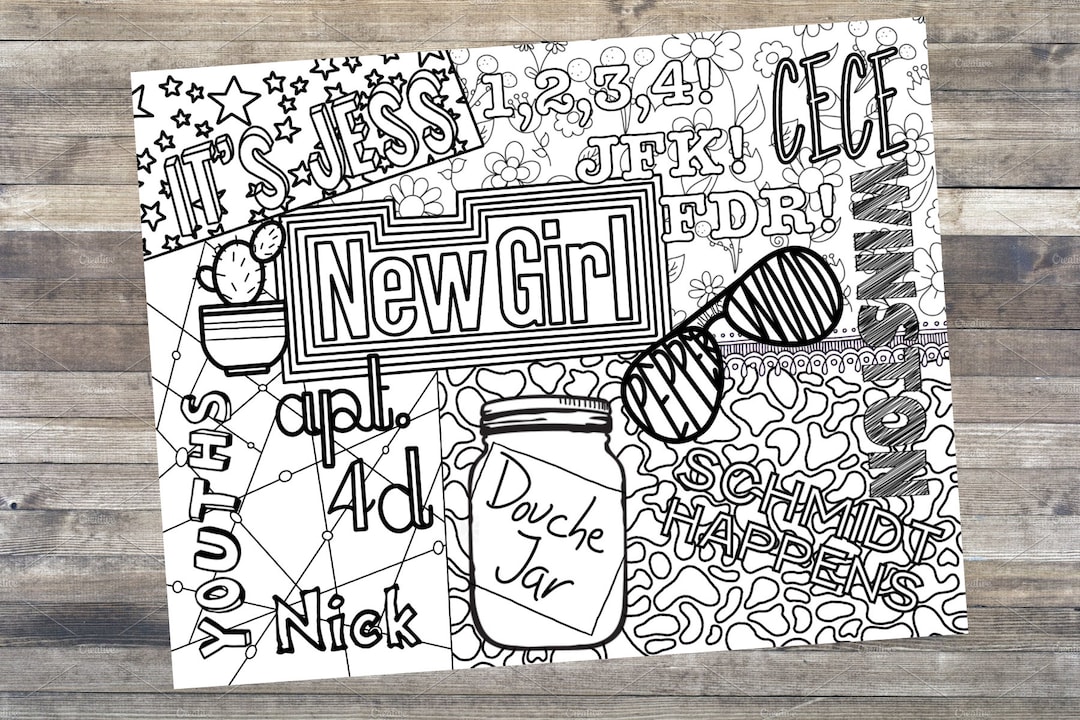 IT'S JESS
1,2,3,4!
JFK!
FDR!
CECE
WINSTON
New Girl
PEPPERWOOD
apt.
4d
YOUTHS
Nick
Douche
Jar
SCHMIDT
HAPPENS
Creative